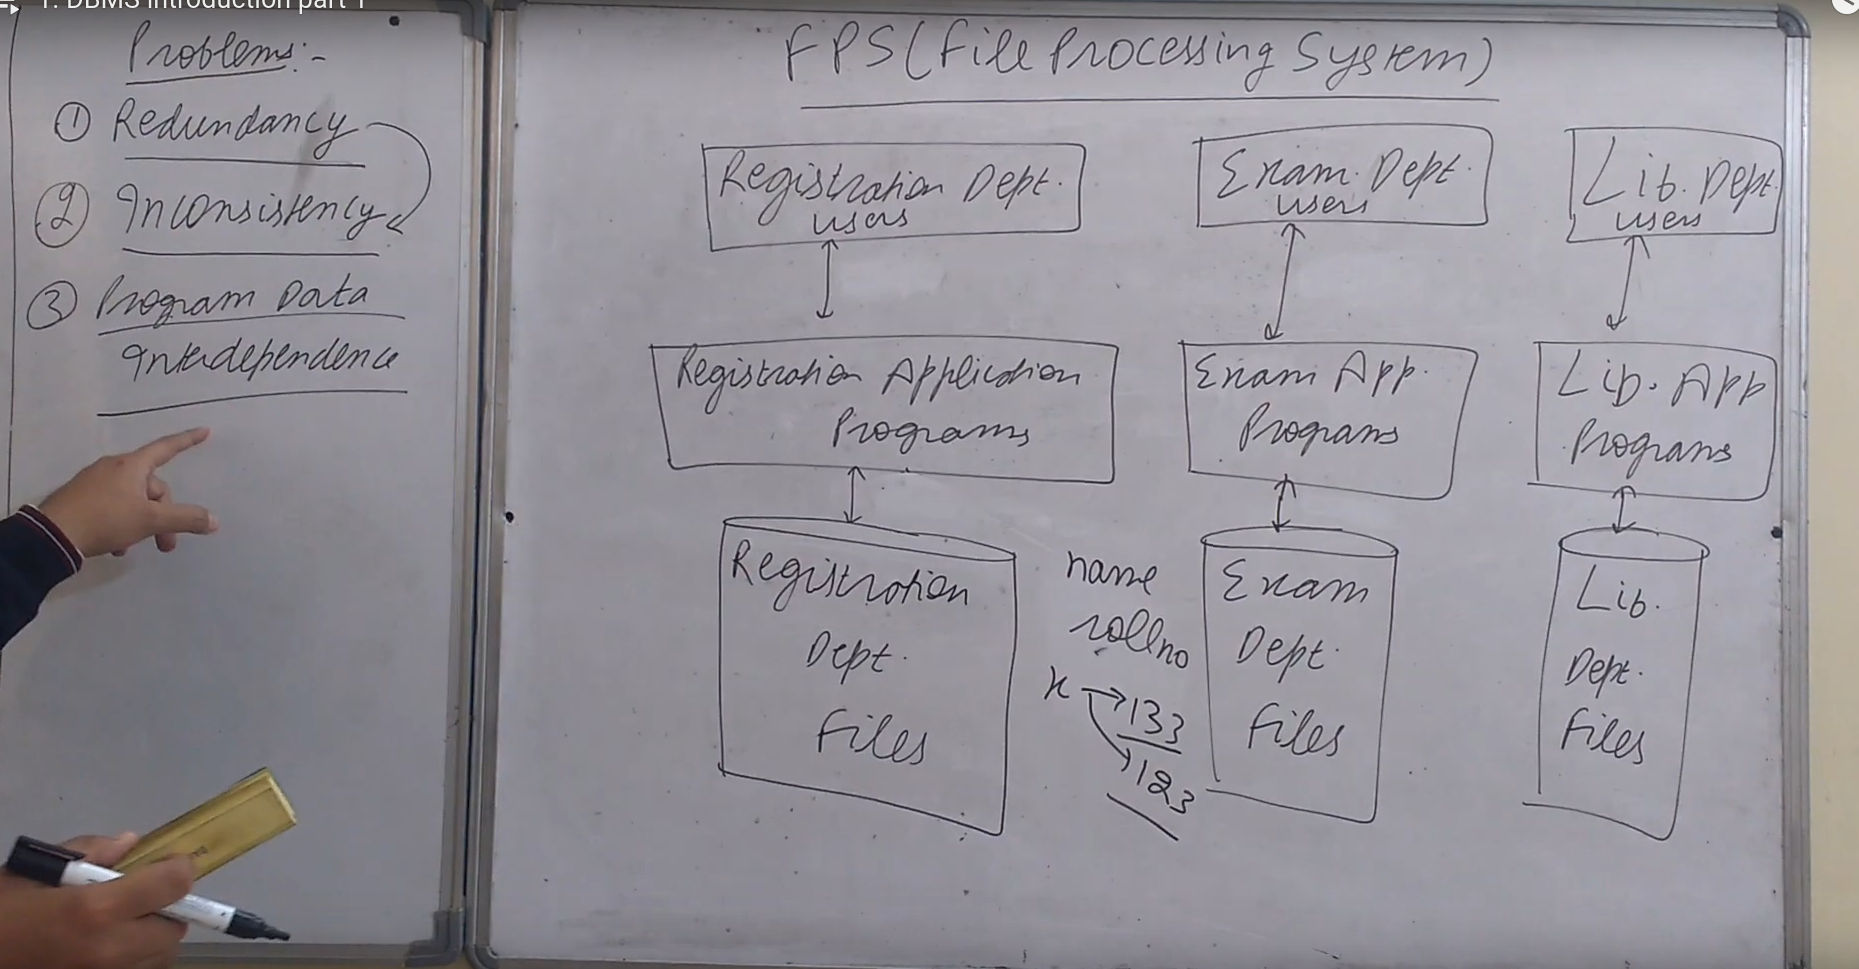 1. DBMS introduction part 1
Problems:-
① Redundancy
② Inconsistency
③ Program Data
Interdependence
FPS (File Processing System)
Registration Dept.
users
Exam. Dept.
users
Lib. Dept.
users
Registration Application
Programs
Exam App.
Programs
Lib. App
Programs
Registration
Dept.
Files
name
rollno
x → 133
→ 123
Exam
Dept.
Files
Lib.
Dept.
Files